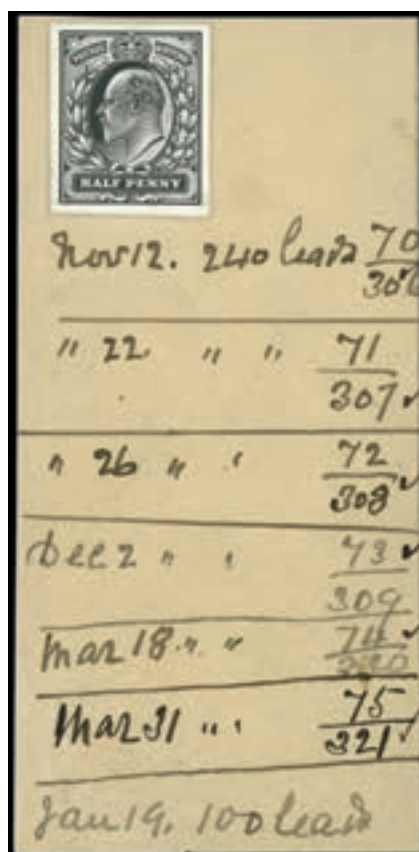 HALF PENNY
Nov 12. 240 leads 70
306
" 22 " " 71
307 ✓
" 26 " " 72
308 ✓
Dec 2 " " 73 ✓
309
Mar 18 " " 74
320
Mar 31 " " 75
321 ✓
Jan 19. 100 leads